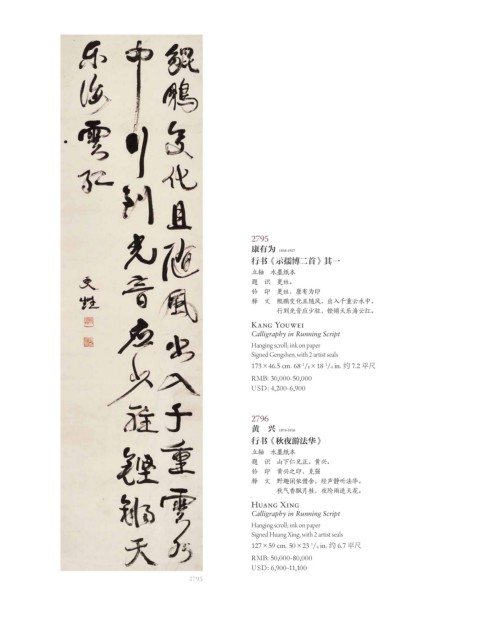 鯤鵬變化且隨風出入千重雲水
中行到光音應少駐鏗鏘天
樂海雲紅
更甡
2795
2795
康有为 1858-1927
行书《示孺博二首》其一
立轴 水墨纸本
题 识 更甡。
钤 印 更甡、康有为印
释 文 鲲鹏变化且随风,出入千重云水中。
行到光音应少驻,铿锵天乐海云红。
KANG YOUWEI
Calligraphy in Running Script
Hanging scroll; ink on paper
Signed Gengshen, with 2 artist seals
173 × 46.5 cm. 68 1/8 × 18 1/4 in. 约 7.2 平尺
RMB: 30,000-50,000
USD: 4,200-6,900
2796
黄 兴 1874-1916
行书《秋夜游法华》
立轴 水墨纸本
题 识 山下仁兄正。黄兴。
钤 印 黄兴之印、克强
释 文 野趣闲依僧舍,经声静听法华。
秋气香飘月桂,雨送天花。
HUANG XING
Calligraphy in Running Script
Hanging scroll; ink on paper
Signed Huang Xing, with 2 artist seals
127 × 59 cm. 50 × 23 1/4 in. 约 6.7 平尺
RMB: 50,000-80,000
USD: 6,900-11,100